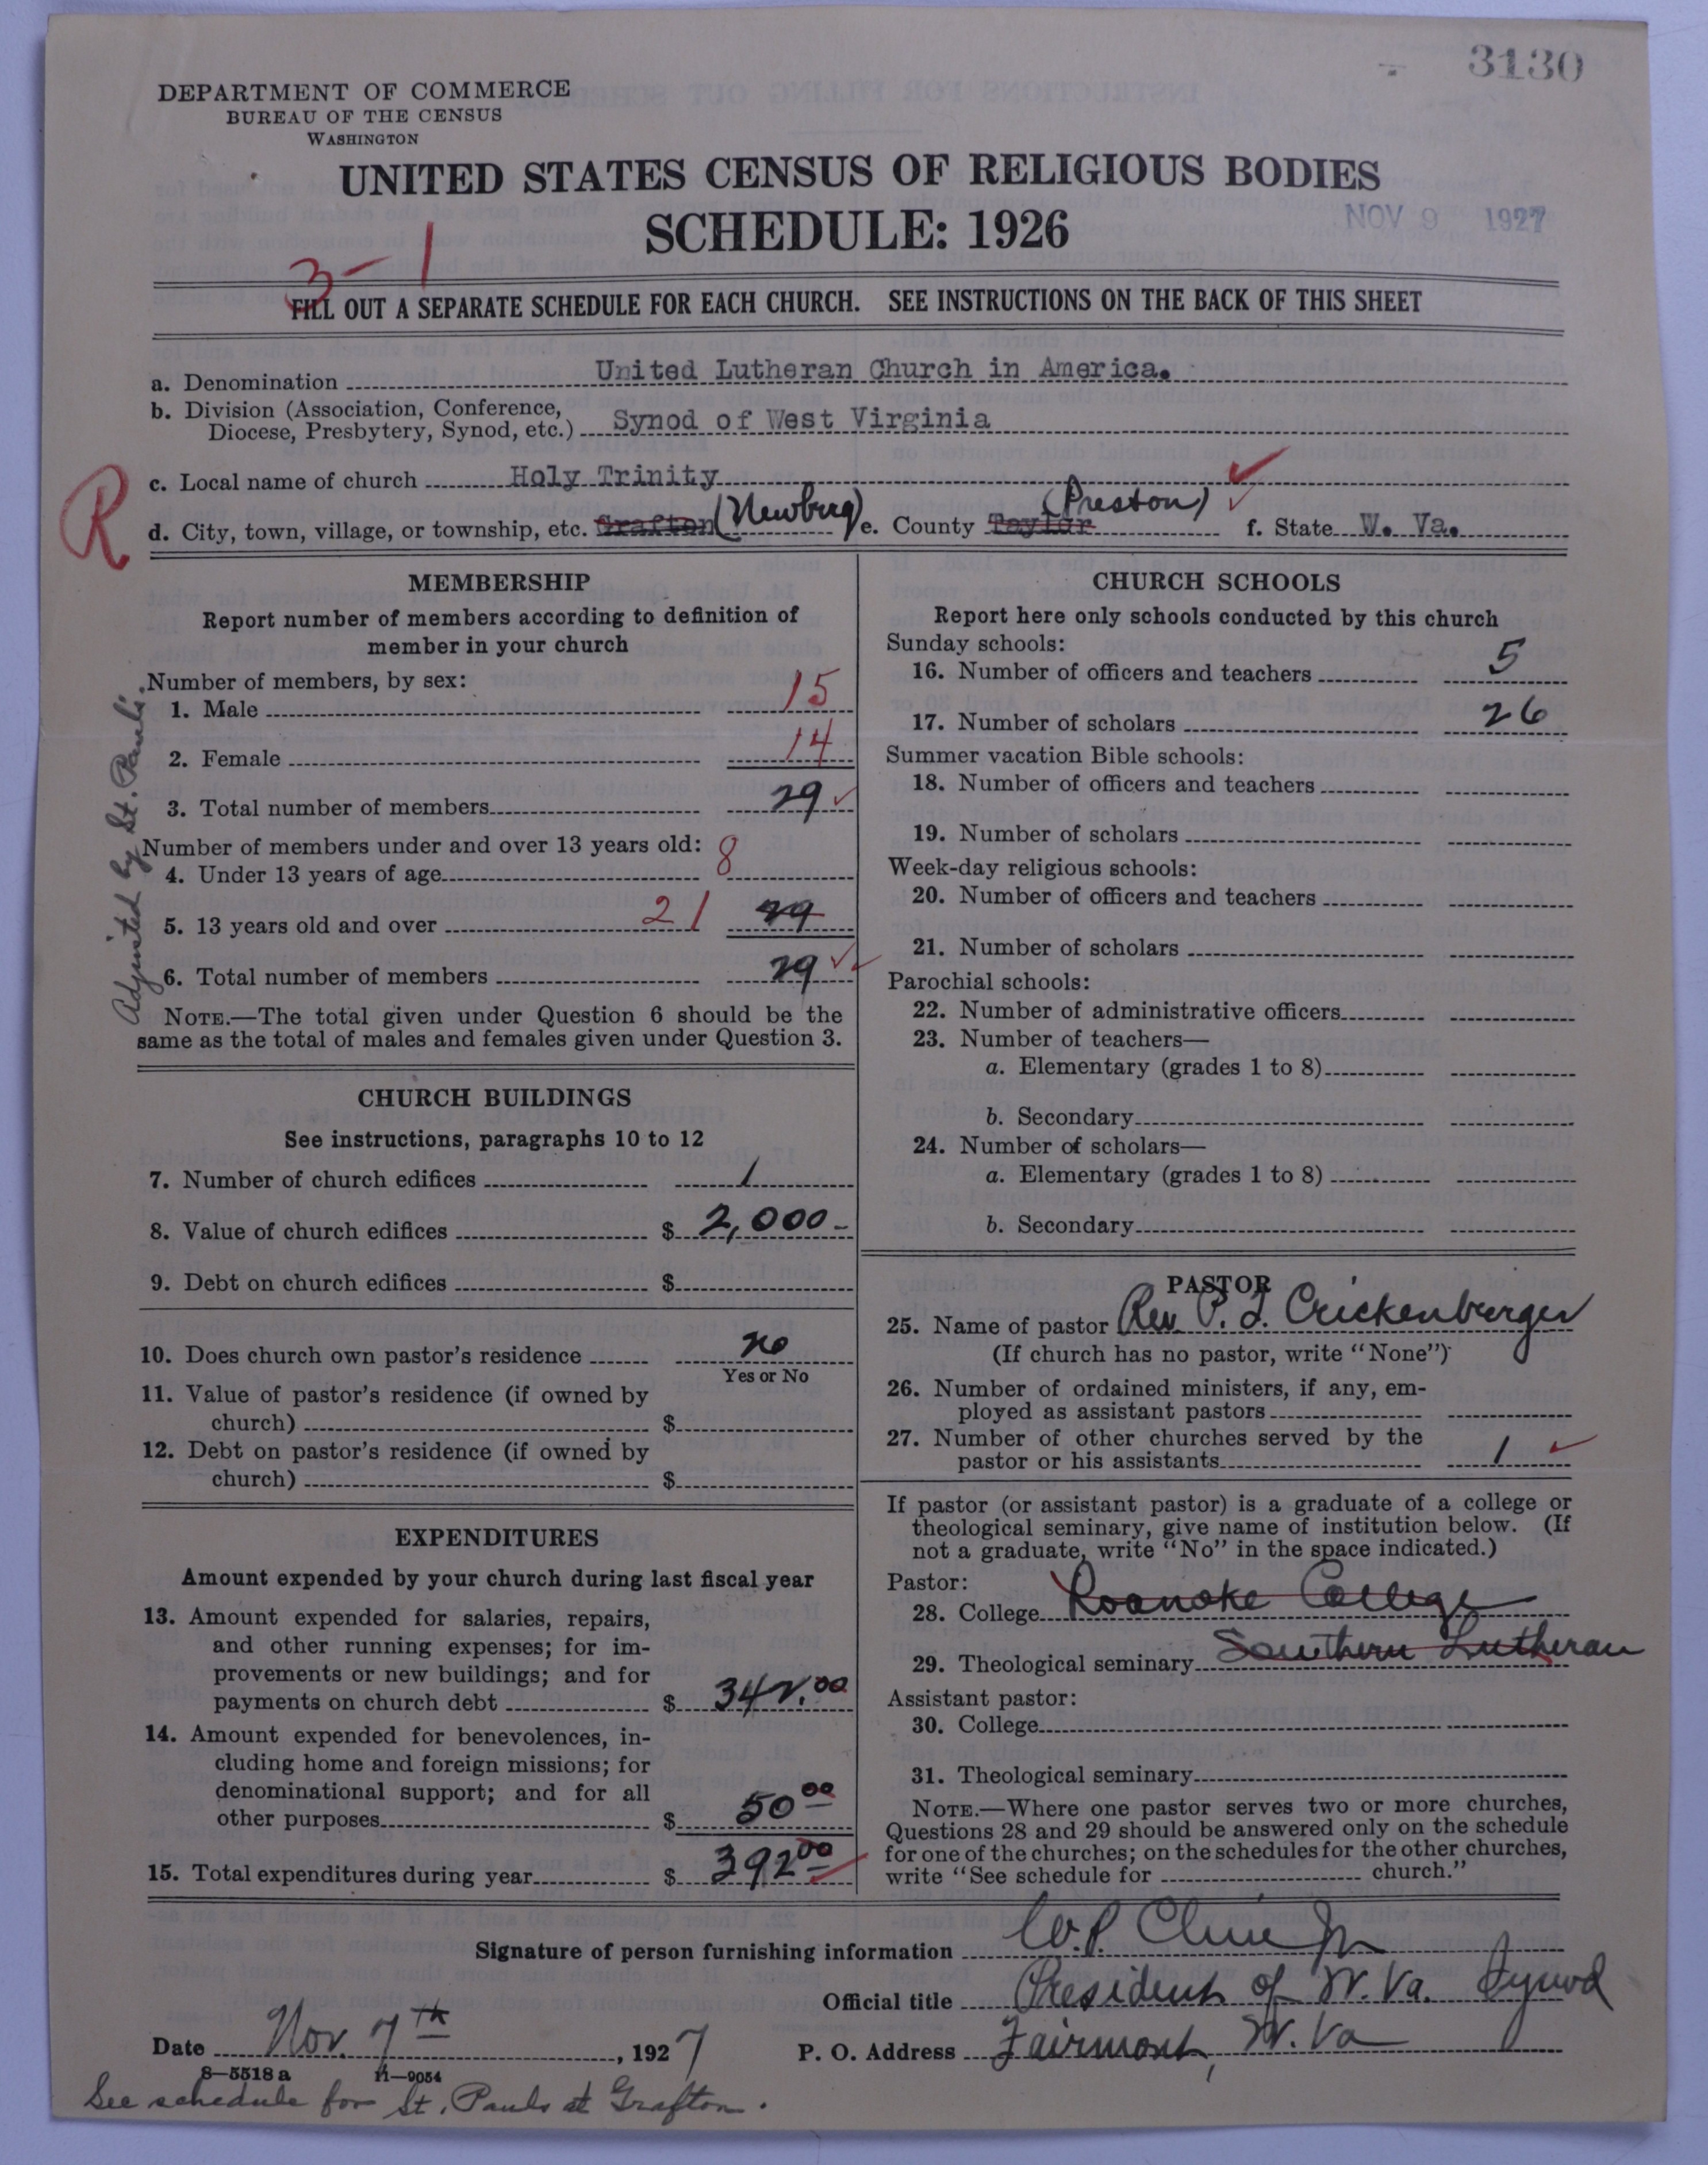 3130
DEPARTMENT OF COMMERCE
BUREAU OF THE CENSUS
WASHINGTON
UNITED STATES CENSUS OF RELIGIOUS BODIES
SCHEDULE: 1926
NOV 9 1927
3-1
FILL OUT A SEPARATE SCHEDULE FOR EACH CHURCH. SEE INSTRUCTIONS ON THE BACK OF THIS SHEET
a. Denomination United Lutheran Church in America.
b. Division (Association, Conference,
Diocese, Presbytery, Synod, etc.) Synod of West Virginia
R
c. Local name of church Holy Trinity
d. City, town, village, or township, etc. Grafton (Newburg) e. County Taylor (Preston) f. State W. Va.
MEMBERSHIP
Report number of members according to definition of
member in your church
Number of members, by sex:
1. Male 15
2. Female 14
3. Total number of members 29
Number of members under and over 13 years old:
4. Under 13 years of age 8
5. 13 years old and over 21 29
6. Total number of members 29
NOTE.—The total given under Question 6 should be the
same as the total of males and females given under Question 3.
Adjusted by St. Pauls.
CHURCH BUILDINGS
See instructions, paragraphs 10 to 12
7. Number of church edifices 1
8. Value of church edifices $ 2,000-
9. Debt on church edifices $
10. Does church own pastor's residence no
Yes or No
11. Value of pastor's residence (if owned by
church) $
12. Debt on pastor's residence (if owned by
church) $
EXPENDITURES
Amount expended by your church during last fiscal year
13. Amount expended for salaries, repairs,
and other running expenses; for im-
provements or new buildings; and for
payments on church debt $ 342.00
14. Amount expended for benevolences, in-
cluding home and foreign missions; for
denominational support; and for all
other purposes $ 50 00
15. Total expenditures during year $ 392 00
CHURCH SCHOOLS
Report here only schools conducted by this church
Sunday schools:
16. Number of officers and teachers 5
17. Number of scholars 26
Summer vacation Bible schools:
18. Number of officers and teachers
19. Number of scholars
Week-day religious schools:
20. Number of officers and teachers
21. Number of scholars
Parochial schools:
22. Number of administrative officers
23. Number of teachers—
a. Elementary (grades 1 to 8)
b. Secondary
24. Number of scholars—
a. Elementary (grades 1 to 8)
b. Secondary
PASTOR
25. Name of pastor Rev. P. L. Crickenberger
(If church has no pastor, write "None")
26. Number of ordained ministers, if any, em-
ployed as assistant pastors
27. Number of other churches served by the
pastor or his assistants 1
If pastor (or assistant pastor) is a graduate of a college or
theological seminary, give name of institution below. (If
not a graduate, write "No" in the space indicated.)
Pastor:
28. College Roanoke College
29. Theological seminary Southern Lutheran
Assistant pastor:
30. College
31. Theological seminary
NOTE.—Where one pastor serves two or more churches,
Questions 28 and 29 should be answered only on the schedule
for one of the churches; on the schedules for the other churches,
write "See schedule for church."
Signature of person furnishing information W. P. Cline Jr
Official title President of W. Va. Synod
Date Nov. 7th, 1927 P. O. Address Fairmont, W. Va
8—5518 a 11—9054
See schedule for St. Pauls at Grafton.